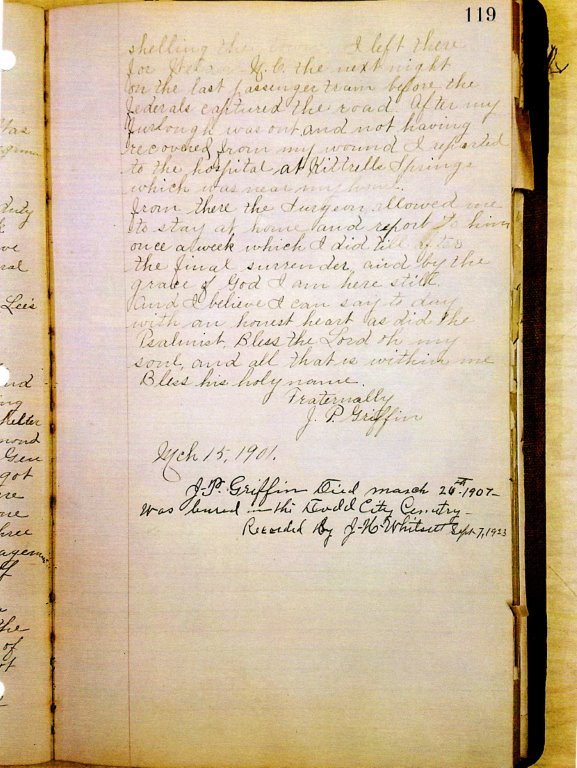 119
shelling the town. I left there
for N.C. the next night
on the last passenger train before the
Federals captured the road. After my
Furlough was out and not having
recovered from my wound I reported
to the hospital at Kittrells Springs
which was near my home.
From there the Surgeon allowed me
to stay at home and report to him
once a week which I did till after
the final surrender, and by the
grace of God I am here still.
And I believe I can say to day
with an honest heart as did the
Psalmist, Bless the Lord oh my
soul, and all that is within me
Bless his holy name.
Fraternally
J. P. Griffin
Mch 15, 1901.
J-P. Griffin Died march 26th 1907-
was bured in the Dodd City Cemtry-
Recorded By J-H-Whitsett Sept 7, 1923
Lee's
and
Gen
got
three
the
of